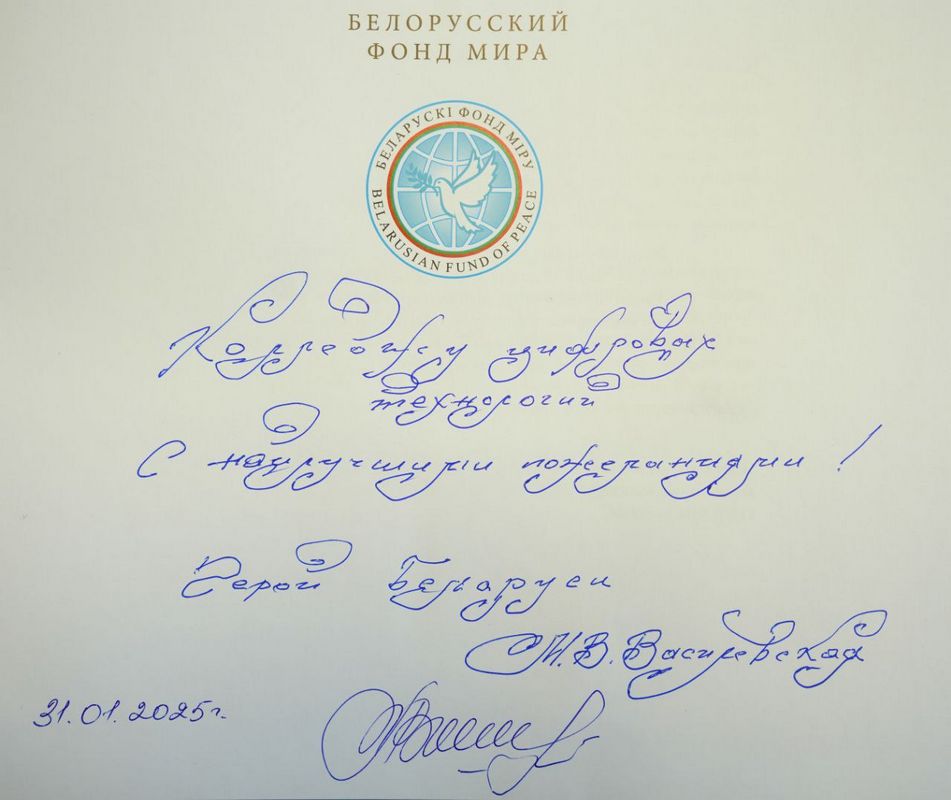 БЕЛОРУССКИЙ
ФОНД МИРА
БЕЛАРУСКІ ФОНД МІРУ
BELARUSIAN FUND OF PEACE
Колледжу цифровых
технологий
С наилучшими пожеланиями!
Герой Беларуси
М.В. Василевская
31.01.2025г.